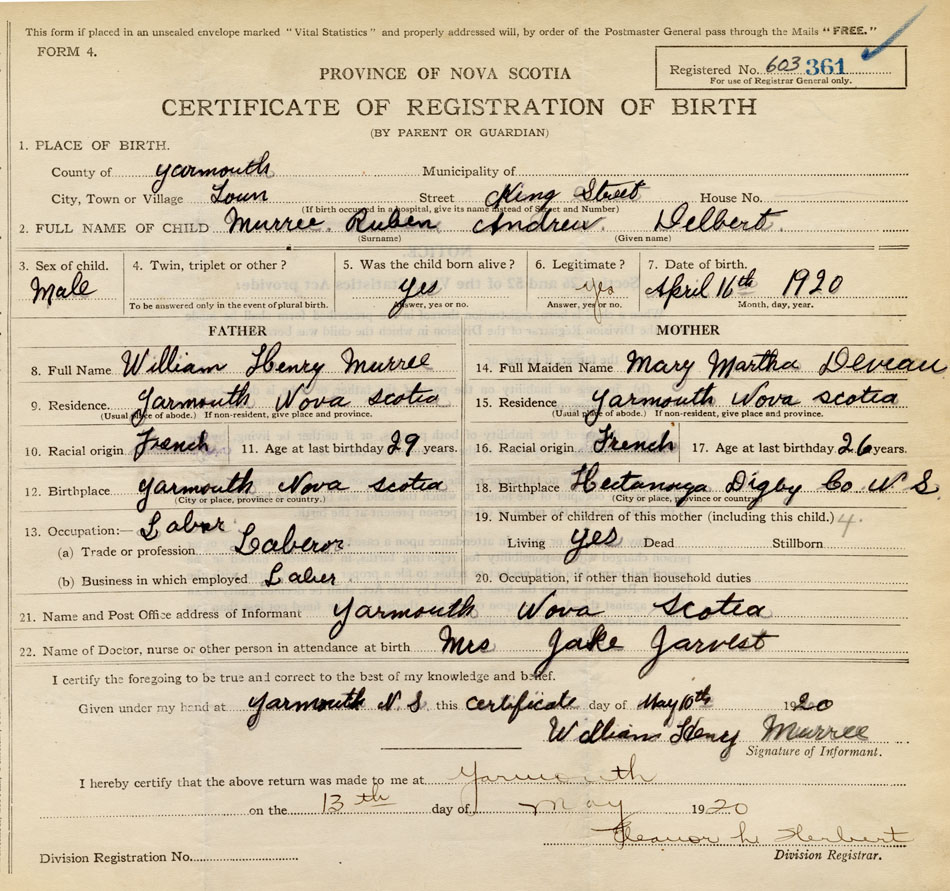 This form if placed in an unsealed envelope marked "Vital Statistics" and properly addressed will, by order of the Postmaster General pass through the Mails "FREE."
FORM 4.
Registered No. 603 361
For use of Registrar General only.
PROVINCE OF NOVA SCOTIA
CERTIFICATE OF REGISTRATION OF BIRTH
(BY PARENT OR GUARDIAN)
1. PLACE OF BIRTH.
County of Yarmouth Municipality of
City, Town or Village Town Street King Street House No.
(If birth occurred in a hospital, give its name instead of Street and Number)
2. FULL NAME OF CHILD Murree. Ruben Andrew. Delbert.
(Surname) (Given name)
3. Sex of child. 4. Twin, triplet or other? 5. Was the child born alive? 6. Legitimate? 7. Date of birth.
Male yes yes April 16th 1920
To be answered only in the event of plural birth. Answer, yes or no. Answer, yes or no. Month, day, year.
FATHER MOTHER
8. Full Name William Henry Murree 14. Full Maiden Name Mary Martha Deveau
9. Residence. Yarmouth Nova Scotia 15. Residence Yarmouth Nova Scotia
(Usual place of abode.) If non-resident, give place and province. (Usual place of abode.) If non-resident, give place and province.
10. Racial origin French 11. Age at last birthday 29 years. 16. Racial origin French 17. Age at last birthday 26 years.
12. Birthplace Yarmouth Nova Scotia 18. Birthplace Hectanoga Digby Co. N S
(City or place, province or country.) (City or place, province or country)
13. Occupation:— Laber 19. Number of children of this mother (including this child.) 4.
(a) Trade or profession Laberor Living yes Dead Stillborn
(b) Business in which employed Laber 20. Occupation, if other than household duties
21. Name and Post Office address of Informant Yarmouth Nova Scotia
22. Name of Doctor, nurse or other person in attendance at birth Mrs Jake Jarvest
I certify the foregoing to be true and correct to the best of my knowledge and belief.
Given under my hand at Yarmouth N. S this certificate day of May 10th 1920
William Henry Murree
Signature of Informant.
I hereby certify that the above return was made to me at Yarmouth
on the 13th day of May 1920
Eleanor L. Herbert
Division Registration No. Division Registrar.